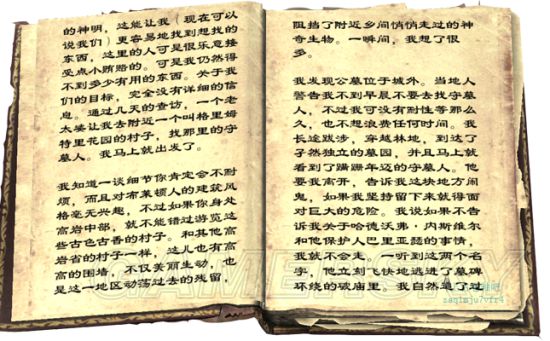 的神明，这能让我（现在可以
说我们）更容易地找到想找的
东西，这里的人可是很乐意接
受点小贿赂的。可是我仍然得
不到多少有用的东西。关于我
们的目标，完全没有详细的信
息。通过几天的查访，一个老
太婆让我去附近一个叫格里姆
特里花园的村子，找那里的守
墓人。我马上就出发了。
我知道一谈细节你肯定会不耐
烦，而且对布莱顿人的建筑风
格毫无兴趣，不过如果你身处
高岩中部，就不能错过游览这
些古色古香的村子。和其他高
岩省的村子一样，这儿也有高
高的围墙，不仅美丽生动，也
是这一地区动荡过去的残留，
阻挡了附近乡间悄悄走过的神
奇生物。一瞬间，我想了很
多。
我发现公墓位于城外。当地人
警告我不到早晨不要去找守墓
人，不过我可没有耐性等那么
久，也不想浪费任何时间。我
长途跋涉，穿越林地，到达了
孑然独立的墓园，并且马上就
看到了蹒跚年迈的守墓人。他
要我离开，告诉我这块地方闹
鬼，如果我坚持留下来就得面
对巨大的危险。我说如果不告
诉我关于哈德沃弗·内斯维尔
和他保护人巴里亚瑟的事情，
我就不会走，一听到这两个名
字，他立刻飞快地逃进了墓碑
环绕的破庙里。我自然追了过
GAMERSKY
zaq1mju7vfr4